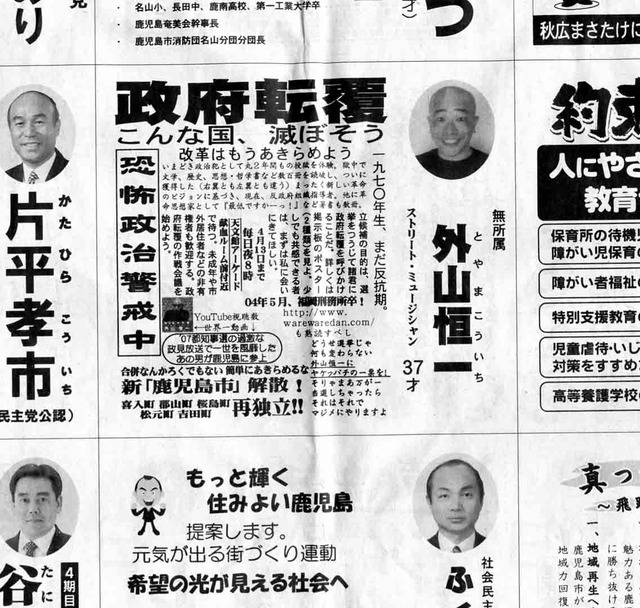 名山小、長田中、鹿南高校、第一工業大学卒
鹿児島奄美会幹事長
鹿児島市消防団名山分団分団長
才)
つ
り
秋広まさたけに
政府転覆
こんな国、滅ぼそう
改革はもうあきらめよう
恐怖政治警戒中
いまどき政治犯として丸2年間もの投獄を体験。獄中で
文学、歴史、思想・哲学書など数百冊を読破し、ついに
獲得した(右翼とも左翼とも違う)まったく新しい革命
のビジョンに基づき、現在、反政府組織指導者。他に革
命思想家として「最低ですかーっ!」など著書も数冊。
一九七〇年生、まだ反抗期。
立候補の目的は、選
挙をつうじて諸君に
政府転覆を呼びかけ
ることだ。詳しくは
掲示板のポスター
(2種類)を見よ。少
しでも共感できる者
は、まずは私に会い
にきてほしい。
4月13日まで
毎日夜8時
天文館アーケード
献血ルーム前付近
で待つ。未成年や市
外居住者などの非有
権者も歓迎する。政
府転覆の作戦会議を
始めよう。
04年5月、福岡刑務所卒
http://www.
warewaredan.com/
も熟読すべし
YouTube視聴数
←世界一動画↓
'07都知事選の過激な
政見放送で一世を風靡した
あの男が鹿児島に参上
どうせ選挙じゃ
何も変わらない
外山恒一に
ヤケッパチの一票を!
そりゃまあ万が一
当選しちゃったら
それはそれで
マジメにやりますよ
合併なんかろくでもない 簡単にあきらめるな
新「鹿児島市」解散!
喜入町 郡山町 桜島町
松元町 吉田町
再独立!!
無所属
外山恒一
とやまこういち
ストリート・ミュージシャン
37才
かたひらこういち
片平孝市
民主党公認)
約束
人にやさ
教育
保育所の待機児
障がい児保育の
障がい者福祉の
特別支援教育の
児童虐待・いじ
対策をすすめ
高等養護学校の
もっと輝く
住みよい鹿児島
提案します。
元気が出る街づくり運動
希望の光が見える社会へ
社会民主
ふく
4期目
たに
谷
真っ
～飛
一、地域再生へ
魅力ある鹿
に勝ち抜ける
鹿児島市が
地域力回復